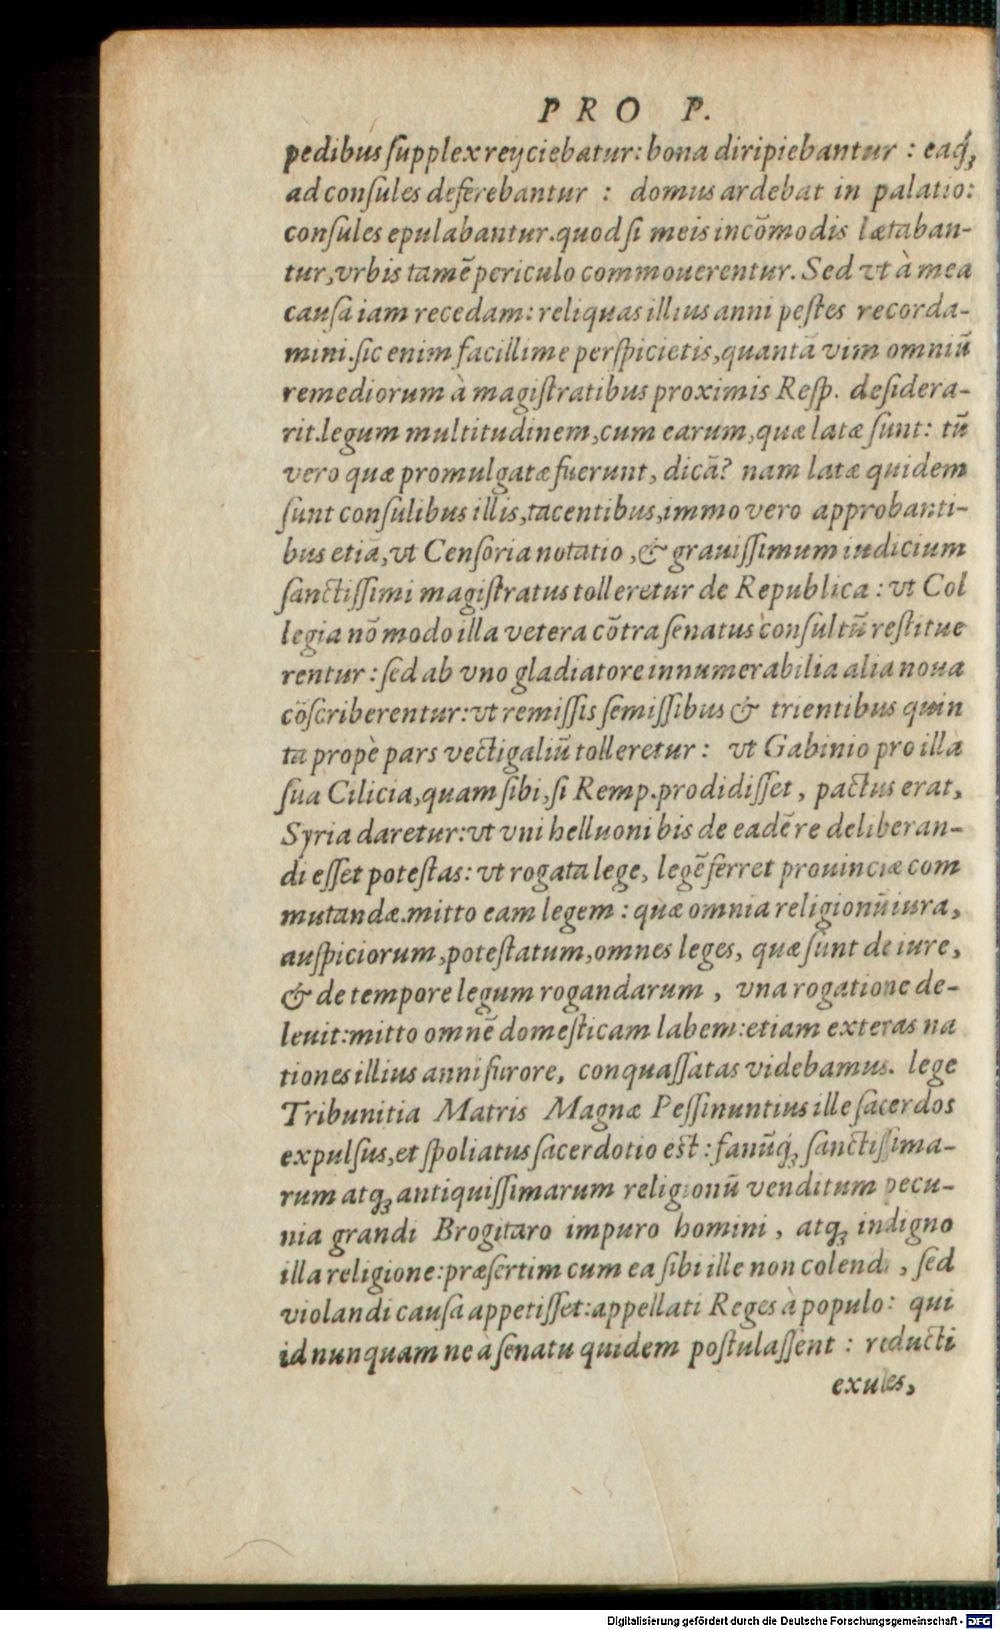 PRO P.
pedibus ſupplex reijciebatur: bona diripiebantur : eaq́ꝫ
ad conſules deferebantur : domus ardebat in palatio:
conſules epulabantur.quod ſi meis incōmodis lætaban-
tur,vrbis tamē periculo commouerentur. Sed vt à mea
cauſa iam recedam: reliquas illius anni peſtes recorda-
mini.ſic enim facillime perſpicietis,quantā vim omniū
remediorum à magiſtratibus proximis Reſp. deſidera-
rit.legum multitudinem,cum earum,quæ latæ ſunt: tū
vero quæ promulgatæ fuerunt, dicā? nam latæ quidem
ſunt conſulibus illis,tacentibus,immo vero approbanti-
bus etiā,vt Cenſoria notatio ,& grauiſſimum iudicium
ſanctiſſimi magiſtratus tolleretur de Republica : vt Col
legia nō modo illa vetera cōtra ſenatus conſultū reſtitue
rentur : ſed ab vno gladiatore innumerabilia alia noua
cōſcriberentur:vt remiſſis ſemiſſibus & trientibus quin
ta propè pars vectigaliū tolleretur : vt Gabinio pro illa
ſua Cilicia,quam ſibi,ſi Remp.prodidiſſet, pactus erat,
Syria daretur:vt vni helluoni bis de eadē re deliberan-
di eſſet poteſtas: vt rogata lege, legē ferret prouinciæ com
mutandæ.mitto eam legem : quæ omnia religionū iura,
auſpiciorum,poteſtatum,omnes leges, quæ ſunt de iure,
& de tempore legum rogandarum , vna rogatione de-
leuit:mitto omnē domeſticam labem:etiam exteras na
tiones illius anni furore, conquaſſatas videbamus. lege
Tribunitia Matris Magnæ Peſſinuntius ille ſacerdos
expulſus,et ſpoliatus ſacerdotio eſt : fanūq́ꝫ ſanctiſſima-
rum atqꝫ antiquiſſimarum religionū venditum pecu-
nia grandi Brogitaro impuro homini , atqꝫ indigno
illa religione:præſertim cum ea ſibi ille non colendi , ſed
violandi cauſa appetiſſet:appellati Reges à populo: qui
id nunquam ne à ſenatu quidem poſtulaſſent : reducti
exules,
Digitalisierung gefördert durch die Deutsche Forschungsgemeinschaft - DFG